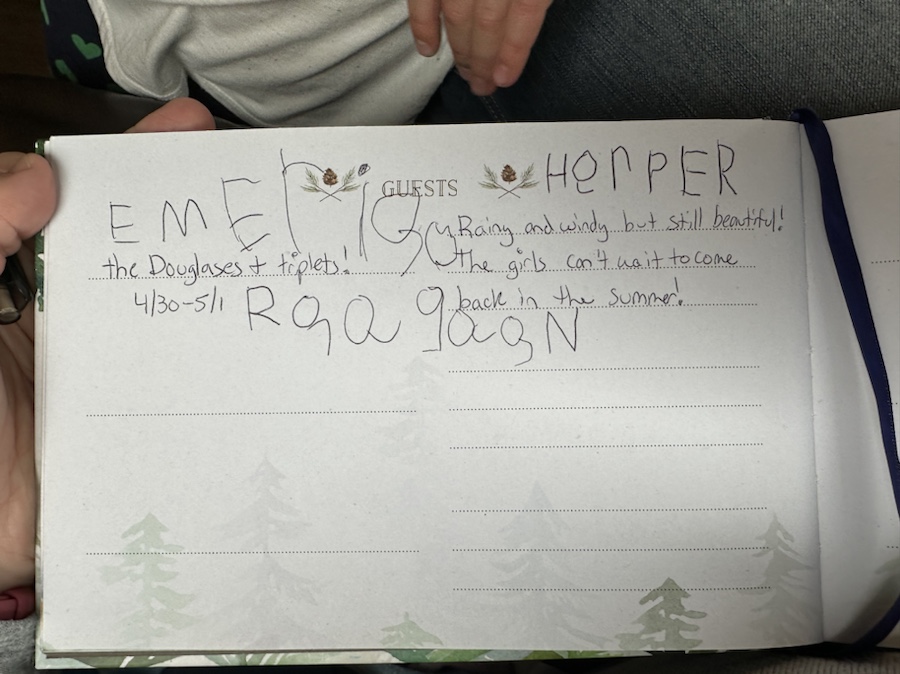 GUESTS
HarPER
the Douglases + triplets!
4/30-5/1
Rainy and windy but still beautiful!
the girls can't wait to come
back in the summer!